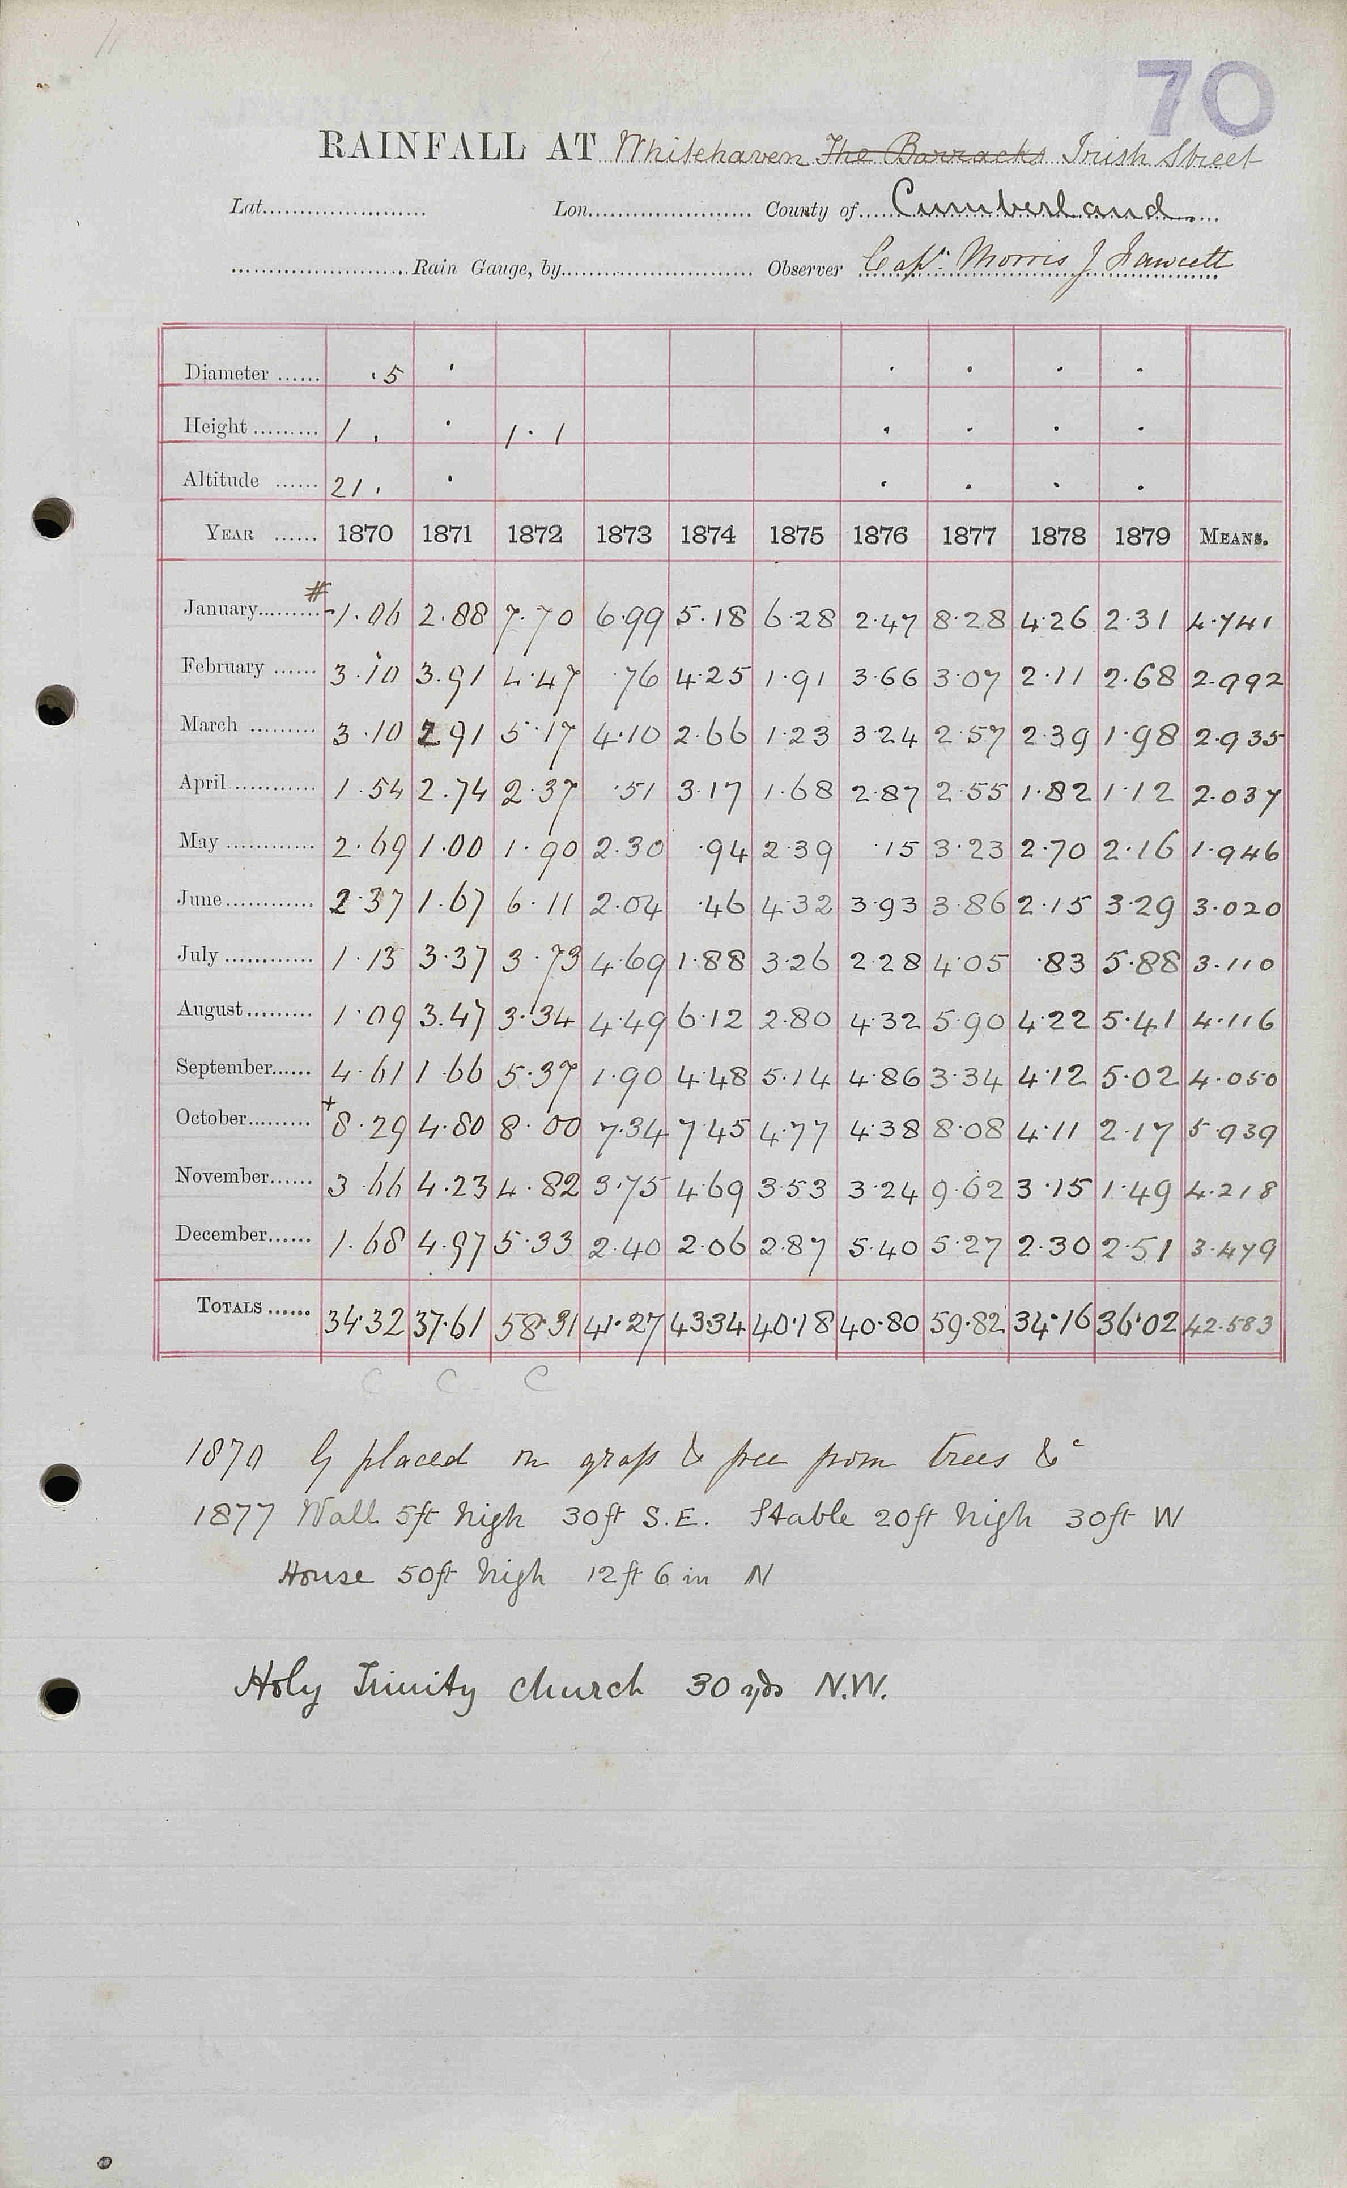 70
RAINFALL AT Whitehaven The Barracks Irish Street
Lat. Lon. County of Cumberland
Rain Gauge, by Observer Capt. Morris J Fawcett
Diameter ...... .5
Height ......... 1 . 1.1
Altitude ...... 21.
YEAR ...... 1870 1871 1872 1873 1874 1875 1876 1877 1878 1879 MEANS.
#
January......... 1.06 2.88 7.70 6.99 5.18 6.28 2.47 8.28 4.26 2.31 4.741
February ...... 3.10 3.91 4.47 .76 4.25 1.91 3.66 3.07 2.11 2.68 2.992
March ......... 3.10 2.91 5.17 4.10 2.66 1.23 3.24 2.57 2.39 1.98 2.935
April............ 1.54 2.74 2.37 .51 3.17 1.68 2.87 2.55 1.82 1.12 2.037
May ............ 2.69 1.00 1.90 2.30 .94 2.39 .15 3.23 2.70 2.16 1.946
June............ 2.37 1.67 6.11 2.04 .46 4.32 3.93 3.86 2.15 3.29 3.020
July ............ 1.13 3.37 3.73 4.69 1.88 3.26 2.28 4.05 .83 5.88 3.110
August......... 1.09 3.47 3.34 4.49 6.12 2.80 4.32 5.90 4.22 5.41 4.116
September...... 4.61 1.66 5.37 1.90 4.48 5.14 4.86 3.34 4.12 5.02 4.050
October......... +8.29 4.80 8.00 7.34 7.45 4.77 4.38 8.08 4.11 2.17 5.939
November...... 3.66 4.23 4.82 3.75 4.69 3.53 3.24 9.62 3.15 1.49 4.218
December...... 1.68 4.97 5.33 2.40 2.06 2.87 5.40 5.27 2.30 2.51 3.479
TOTALS ...... 34.32 37.61 58.31 41.27 43.34 40.18 40.80 59.82 34.16 36.02 42.583
C C C
1870 G placed on grass & free from trees &c
1877 Wall 5ft high 30ft S.E. Stable 20ft high 30ft W
House 50ft high 12ft 6in N
Holy Trinity church 30 yds N.W.